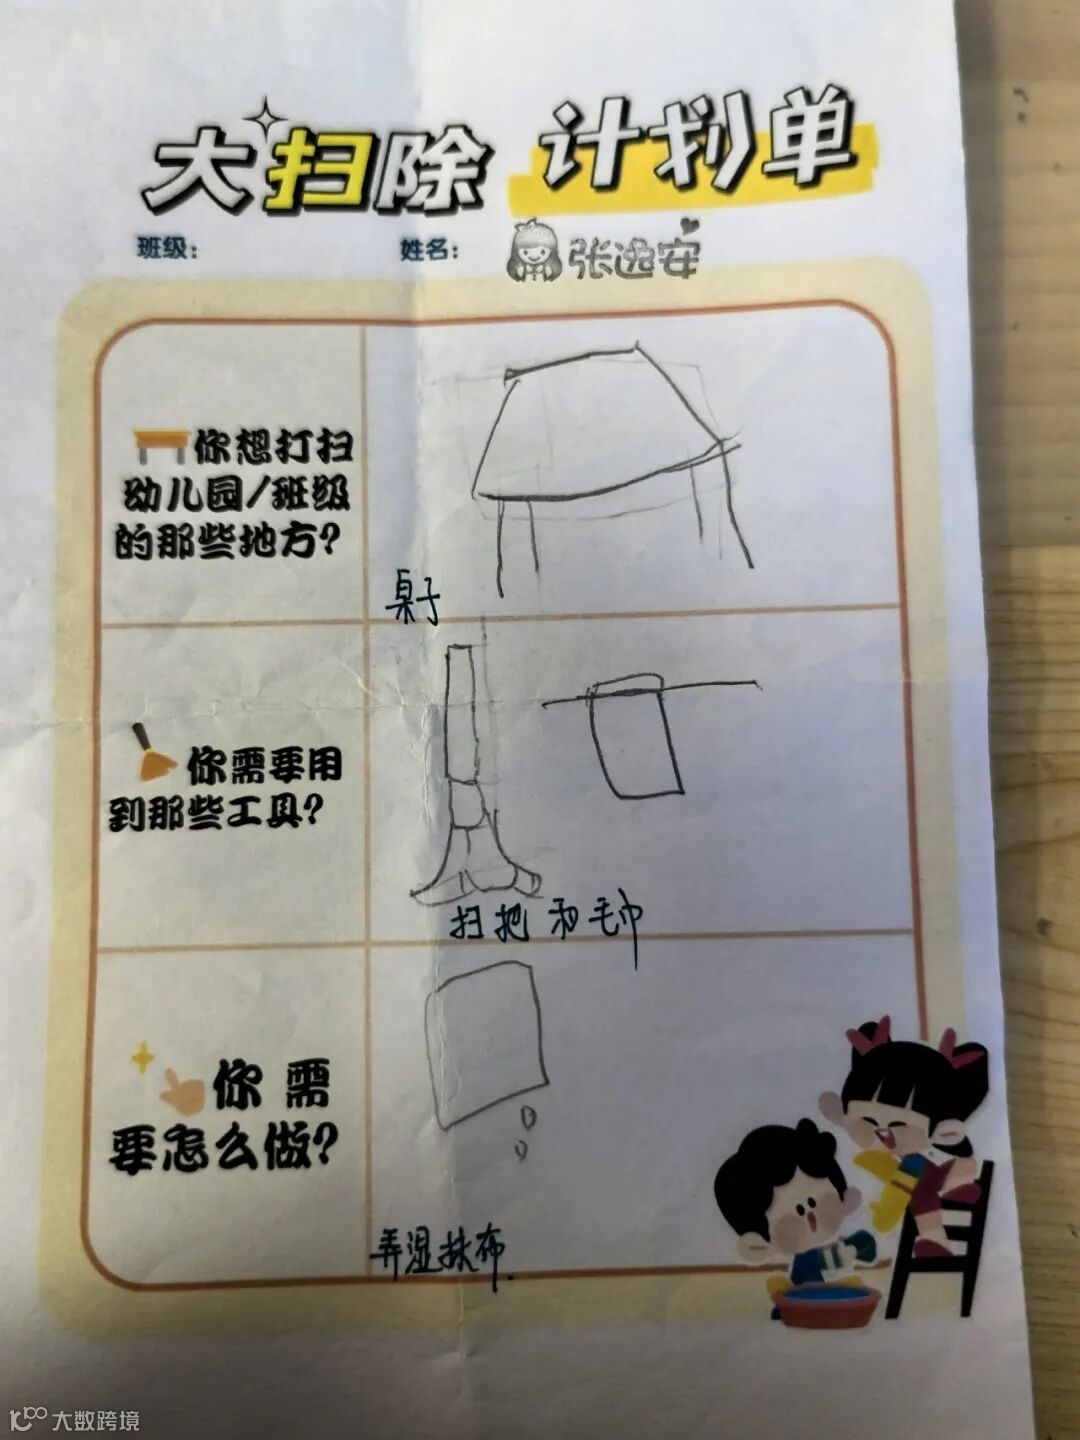 大扫除 计划单
班级： 姓名： 张逸安
你想打扫
幼儿园/班级
的那些地方？
桌子
你需要用
到那些工具？
扫把和毛巾
你需
要怎么做？
弄湿抹布.
大数跨境